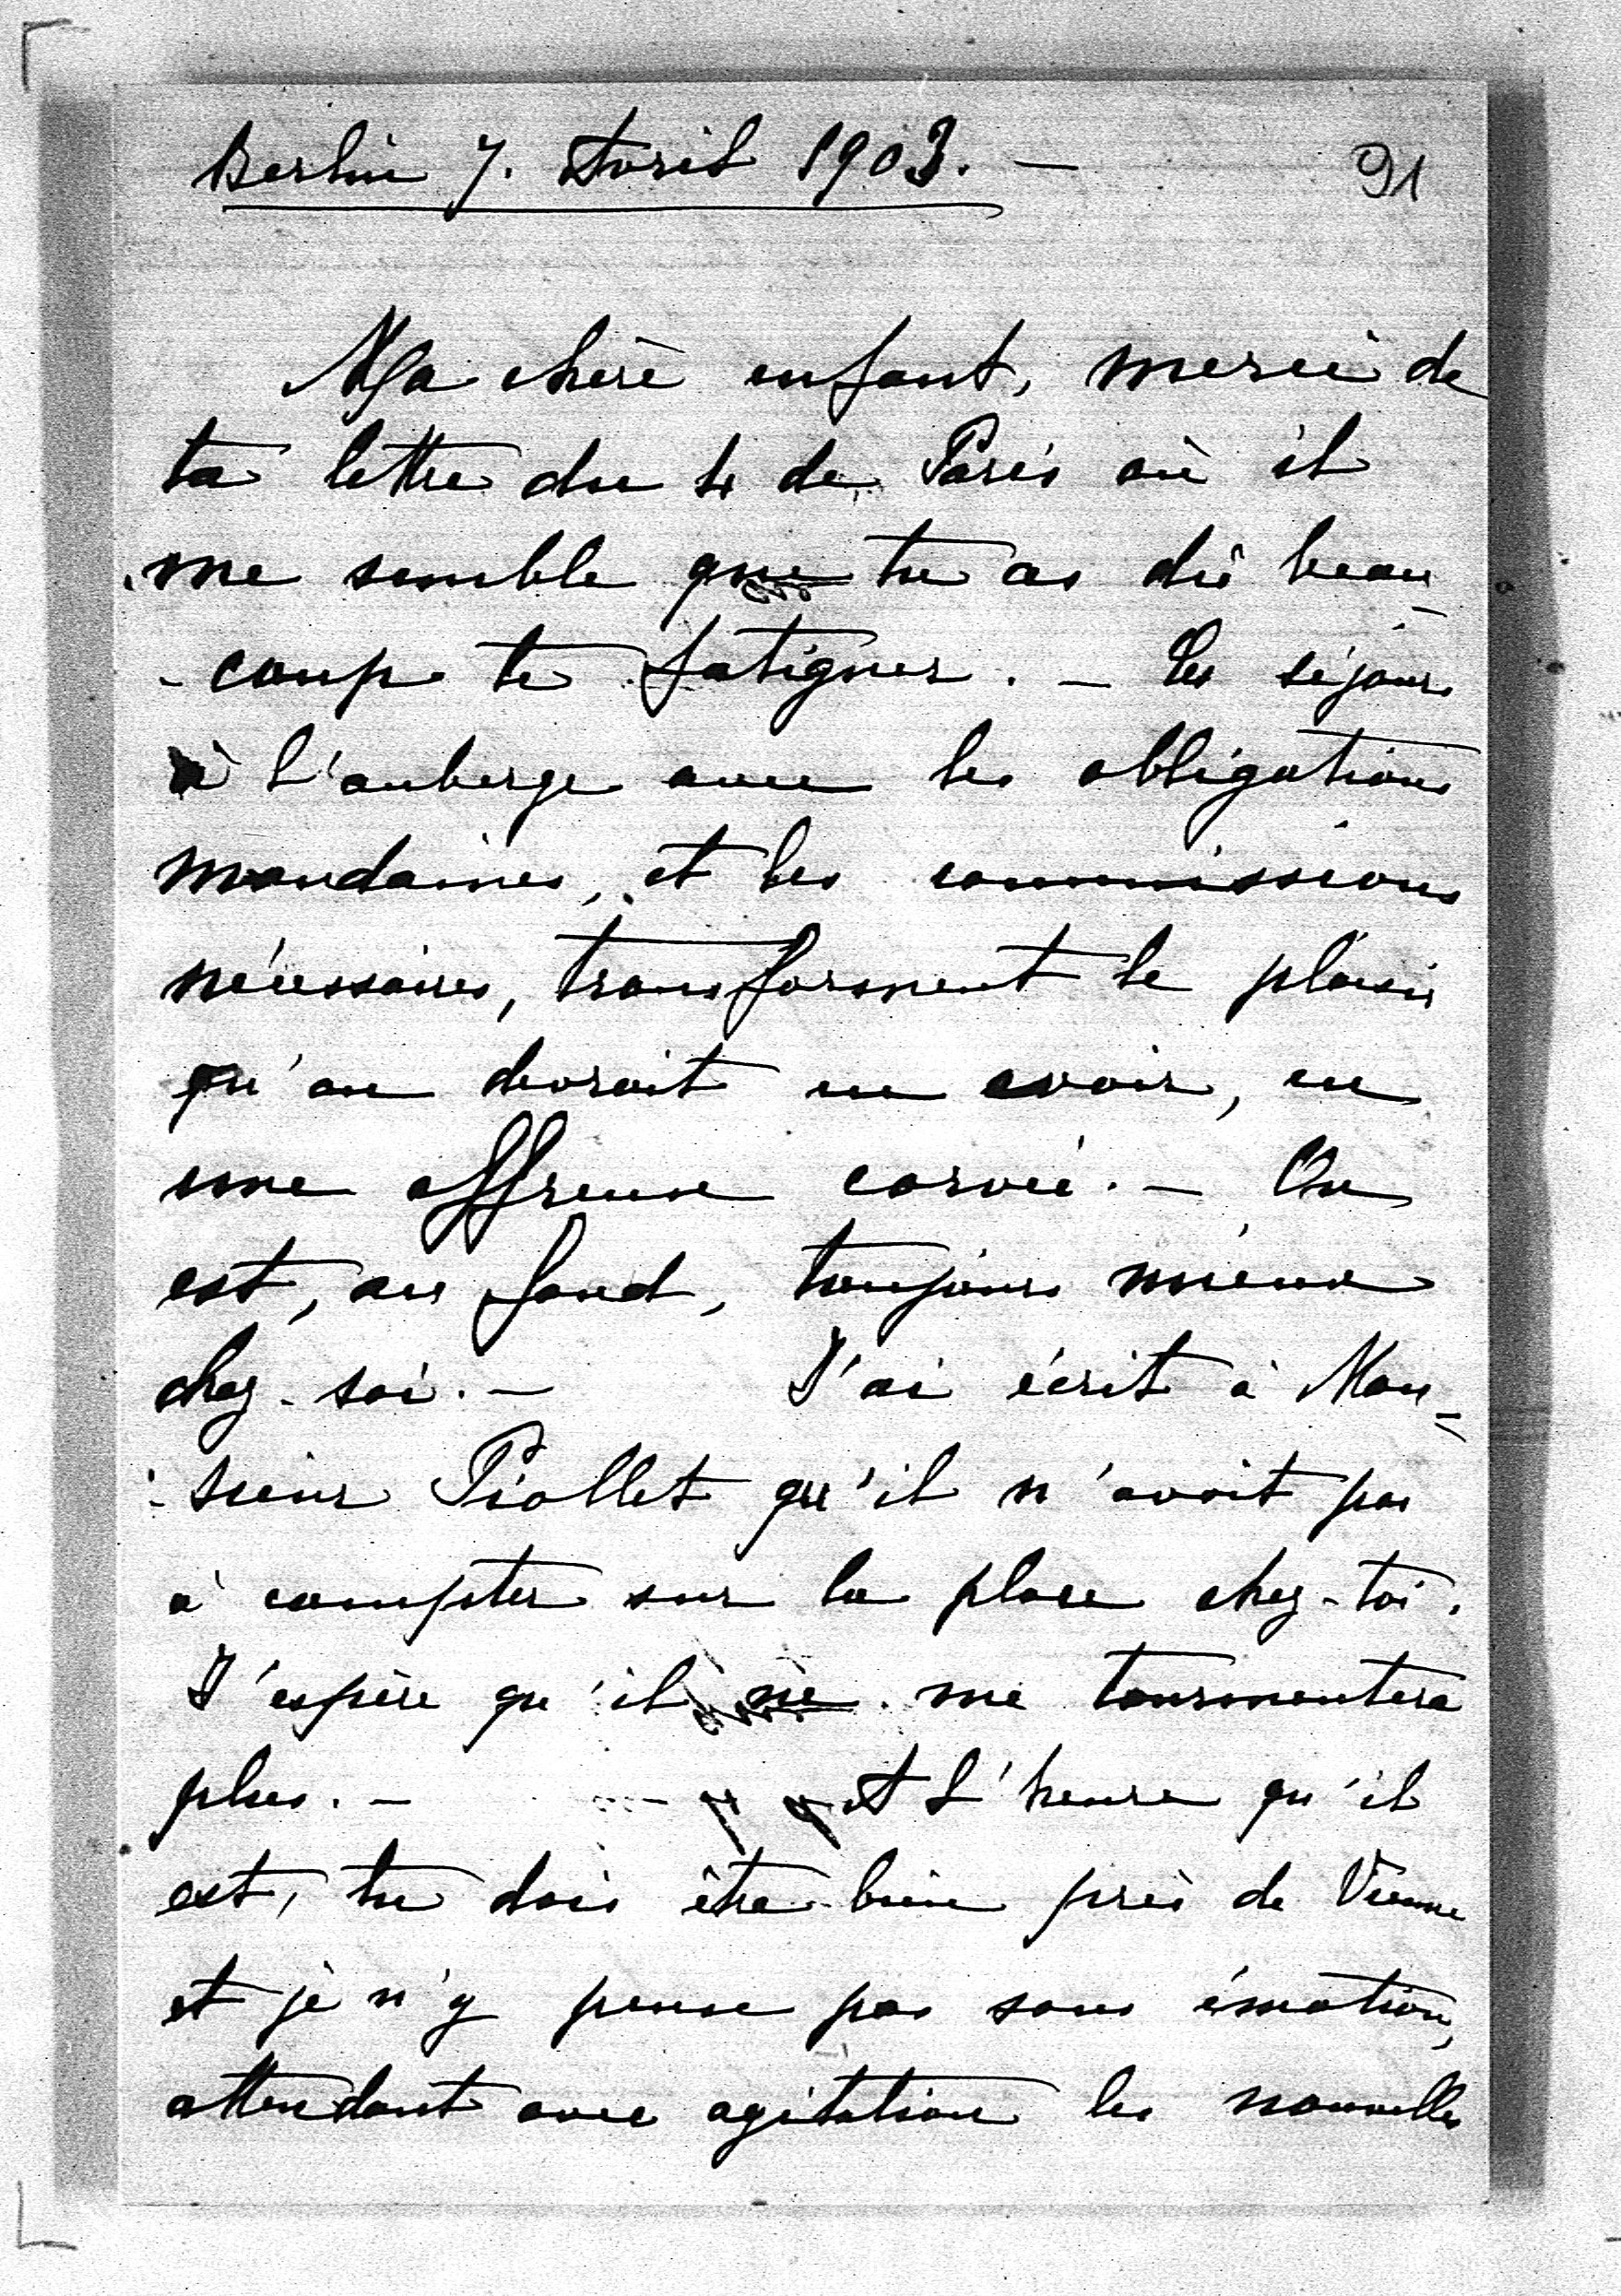 Berlin 7. Avril 1903. —
91
Ma chère enfant, merci de
ta lettre du 4 de Paris où il
me semble que tu as dû beau-
-coup te fatiguer. — Les séjours
à l'auberge avec les obligations
mondaines, et les commissions
nécessaires, transforment le plaisir
qu'on devrait en avoir, en
une affreuse corvée. — On
est, au fond, toujours mieux
chez-soi. — J'ai écrit à Mon=
-sieur Piollet qu'il n'avait pas
à compter sur la place chez-toi.
J'espère qu'il ne me tourmentera
plus. — A l'heure qu'il
est, tu dois être bien près de Vienne
et je n'y pense pas sans émotion,
attendant avec agitation les nouvelles